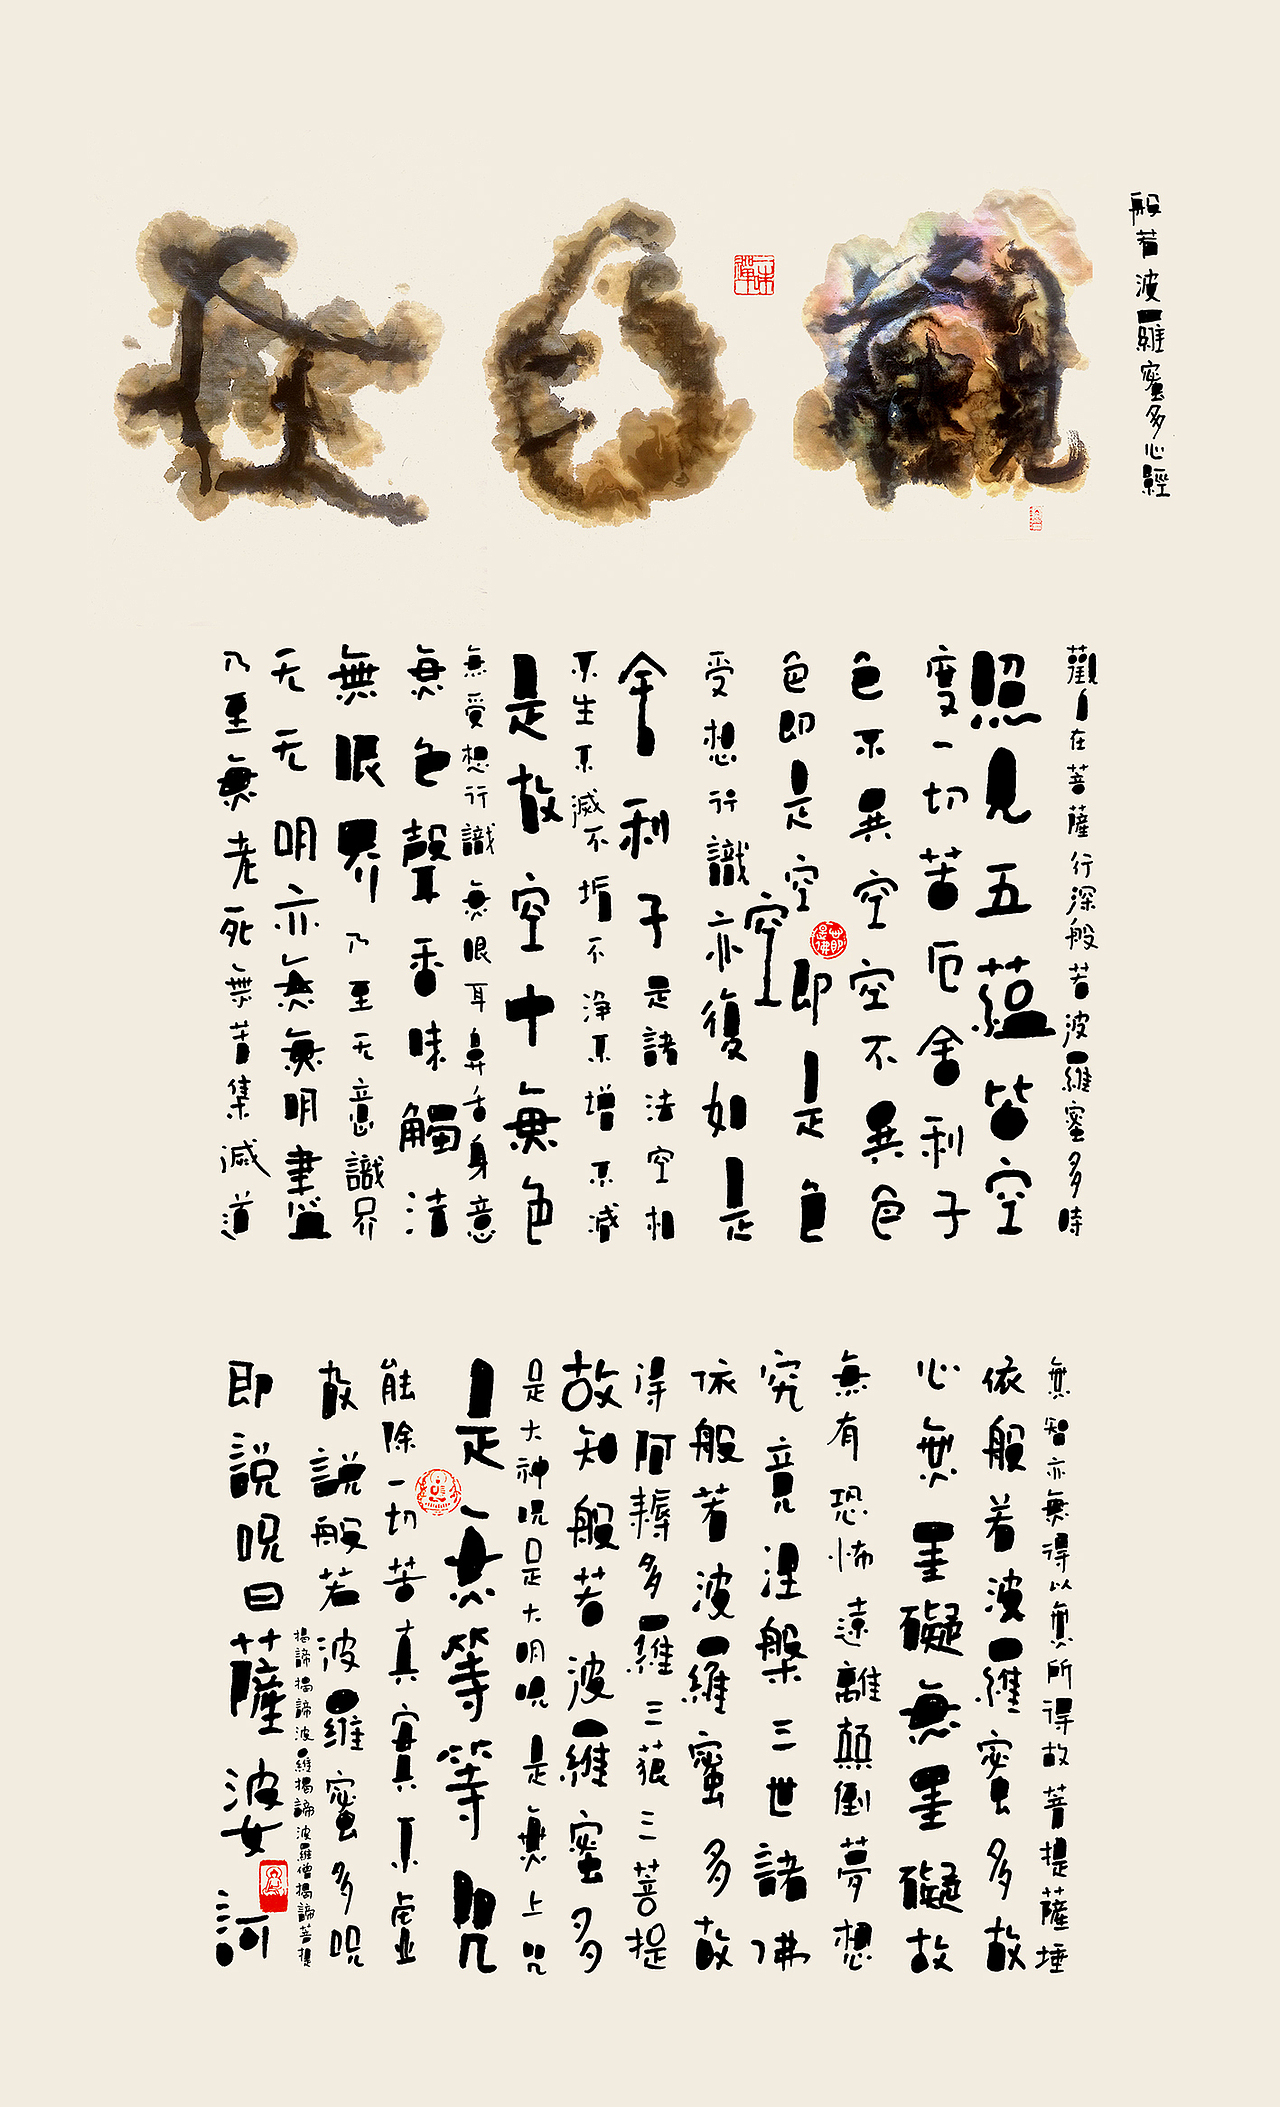 般若波羅蜜多心經
觀自在
觀在菩薩行深般若波羅蜜多時
照見五蘊皆空
度一切苦厄舍利子
色不異空空不異色
色即是空空即是色
受想行識亦復如是
舍利子是諸法空相
不生不滅不垢不淨不增不減
是故空中無色
無受想行識無眼耳鼻舌身意
無色聲香味觸法
無眼界乃至无意識界
无无明亦無無明盡
乃至無老死無苦集滅道
無智亦無得以無所得故菩提薩埵
依般若波羅蜜多故
心無罣礙無罣礙故
無有恐怖遠離顛倒夢想
究竟涅槃三世諸佛
依般若波羅蜜多故
得阿耨多羅三藐三菩提
故知般若波羅蜜多
是大神呪是大明呪是無上呪
是無等等呪
能除一切苦真實不虛
故說般若波羅蜜多呪
揭諦揭諦波羅揭諦波羅僧揭諦菩提
即說呪曰薩婆訶